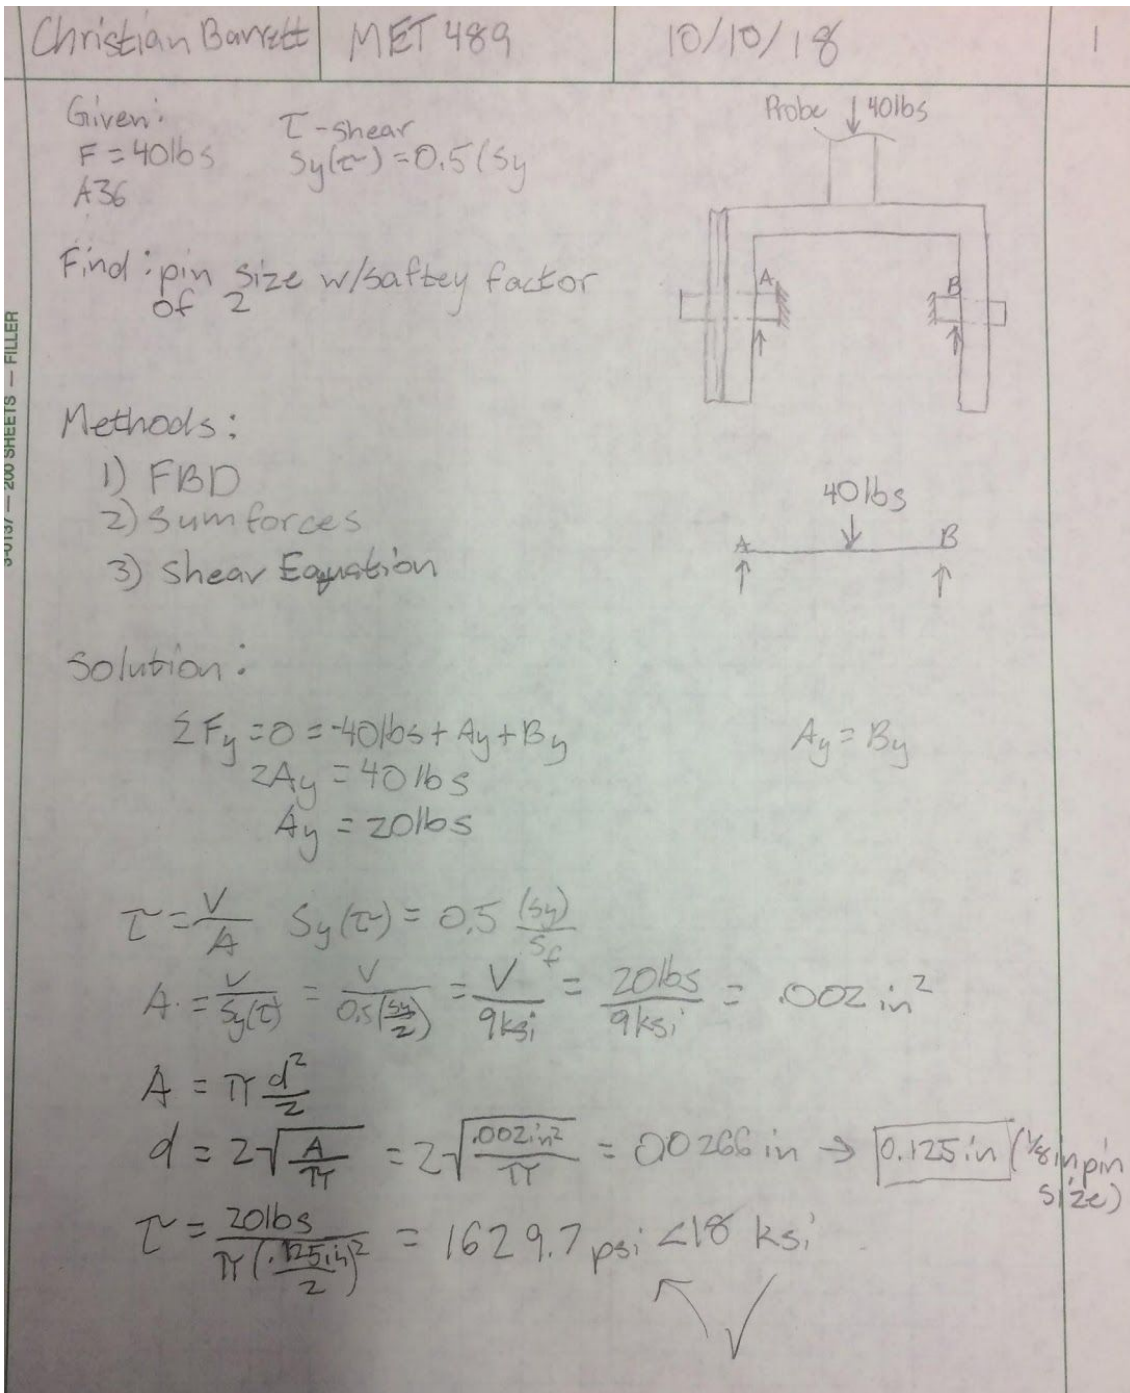 Christian Barrett MET 489 10/10/18 1
Given:
F = 40lbs
A36
τ - shear
Sy(τ) = 0.5(Sy
Probe ↓ 40lbs
A B
Find: pin size w/saftey factor
of 2
3-0137 — 200 SHEETS — FILLER
Methods:
1) FBD
2) Sum forces
3) Shear Equation
40lbs
A B
Solution:
ΣFy = 0 = -40lbs + Ay + By
Ay = By
2Ay = 40lbs
Ay = 20lbs
τ = V/A Sy(τ) = 0.5 (Sy)/Sf
A = V/Sy(τ) = V/0.5(Sy/2) = V/9ksi = 20lbs/9ksi = .002 in²
A = π d²/2
d = 2√(A/π) = 2√(.002in²/π) = 0.0266 in → 0.125in (1/8 in pin
size)
τ = 20lbs/π(.125in/2)² = 1629.7 psi < 18 ksi